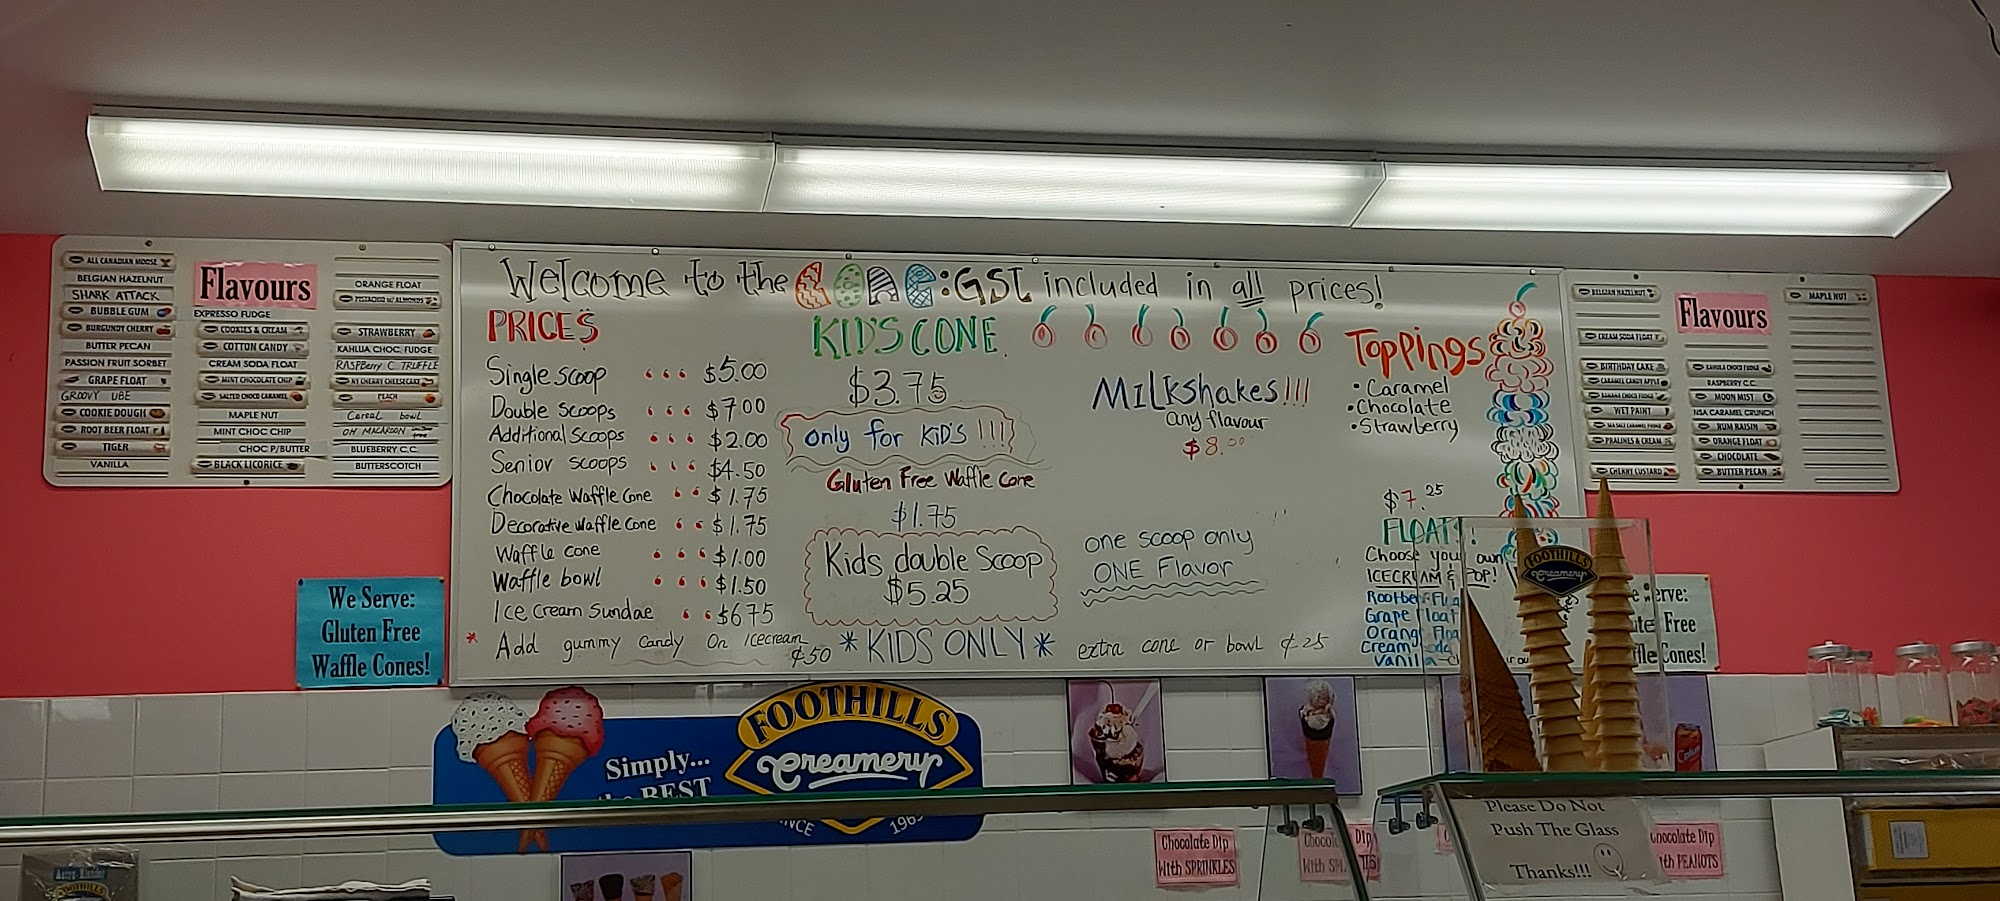 ALL CANADIAN MOOSE
BELGIAN HAZELNUT
SHARK ATTACK
BUBBLE GUM
BURGUNDY CHERRY
BUTTER PECAN
PASSION FRUIT SORBET
GRAPE FLOAT
GROOVY UBE
COOKIE DOUGH
ROOT BEER FLOAT
TIGER
VANILLA
Flavours
EXPRESSO FUDGE
COOKIES & CREAM
COTTON CANDY
CREAM SODA FLOAT
MINT CHOCOLATE CHIP
SALTED CHOCO CARAMEL
MAPLE NUT
MINT CHOC CHIP
CHOC P/BUTTER
BLACK LICORICE
ORANGE FLOAT
PISTACHIO w/ ALMONDS
STRAWBERRY
KAHLUA CHOC FUDGE
RASPBerry C TRUFFLE
NY CHERRY CHEESECAKE
PEACH
Cereal bowl
OH MACAROON
BLUEBERRY C.C.
BUTTERSCOTCH
We Serve:
Gluten Free
Waffle Cones!
Welcome to the CONE: GST included in all prices!
PRICES
Single scoop $5.00
Double scoops $7.00
Additional scoops $2.00
Senior scoops $4.50
Chocolate Waffle Cone $1.75
Decorative Waffle Cone $1.75
Waffle cone $1.00
Waffle bowl $1.50
Ice cream Sundae $6.75
* Add gummy candy on Icecream ¢50
KID'S CONE
$3.75
only for KID'S !!!
Gluten Free Waffle Cone
$1.75
Kids double Scoop
$5.25
*KIDS ONLY*
MILKshakes!!!
any flavour
$8.00
one scoop only
ONE Flavor
extra cone or bowl ¢25
Toppings
•Caramel
•Chocolate
•Strawberry
$7.25
FLOATS!
Choose your own
ICECREAM & POP!
Rootbeer Floa
Grape Float
Orange Floa
Cream Soda
Vanilla
BELGIAN HAZELNUT
CREAM SODA FLOAT
BIRTHDAY CAKE
CARAMEL CANDY APPLE
BANANA CHOCO FUDGE
WET PAINT
SEA SALT CARAMEL FUDGE
PRALINES & CREAM
CHERRY CUSTARD
Flavours
KAHLUA CHOCO FUDGE
RASPBERRY C.C.
MOON MIST
NSA CARAMEL CRUNCH
RUM RAISIN
ORANGE FLOAT
CHOCOLATE
BUTTER PECAN
MAPLE NUT
FOOTHILLS
Creamery
e Serve:
Free
Cones!
Simply...
the BEST
FOOTHILLS
Creamery
Chocolate Dip
With SPRINKLES
Dip
Chocolate Dip
With PEANUTS
Please Do Not
Push The Glass
Thanks!!!
FOOTHILLS